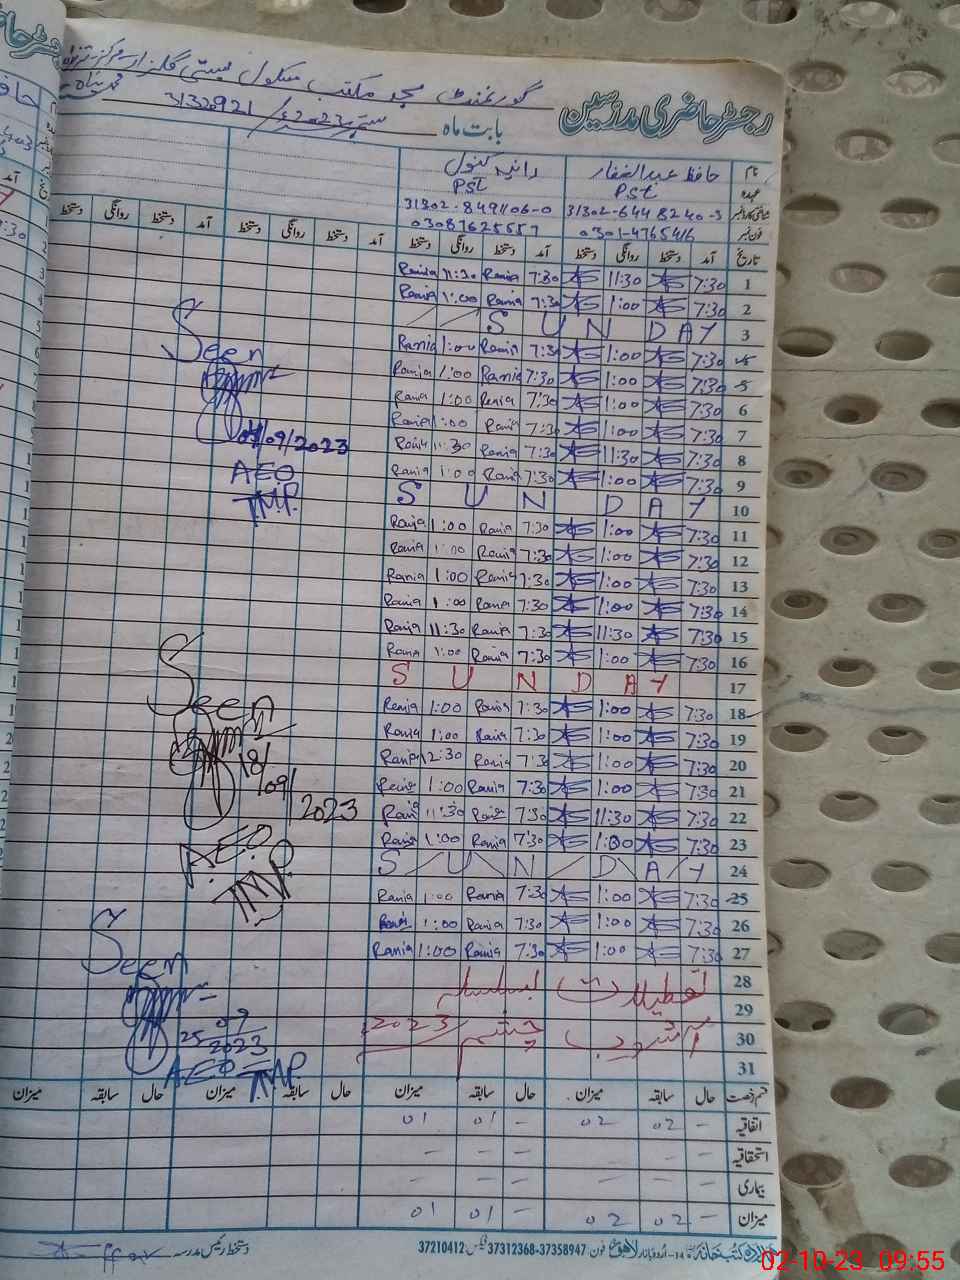 رجسٹر حاضری مدرسین
گورنمنٹ مسجد مکتب سکول بستی گلزار مرکز
بابت ماہ ستمبر 2023ء 31320921
نام حافظ عبدالغفار رانیہ کنول
عہدہ PST PST
شناختی کارڈ نمبر 31302-6448240-3 31302-8491106-0
فون نمبر 0301-4765416 03087625557
تاریخ آمد دستخط روانگی دستخط آمد دستخط روانگی دستخط آمد دستخط روانگی دستخط آمد دستخط روانگی دستخط
1 7:30 11:30 7:30 Rania 11:30 Rania
2 7:30 1:00 7:30 Rania 1:00 Rania
3 SUNDAY
4 7:30 1:00 7:30 Rania 1:00 Rania
5 7:30 1:00 7:30 Rania 1:00 Rania
6 7:30 1:00 7:30 Rania 1:00 Rania
7 7:30 1:00 7:30 Rania 1:00 Rania
8 7:30 11:30 7:30 Rania 11:30 Rania
9 7:30 1:00 7:30 Rania 1:00 Rania
10 SUNDAY
11 7:30 1:00 7:30 Rania 1:00 Rania
12 7:30 1:00 7:30 Rania 1:00 Rania
13 7:30 1:00 7:30 Rania 1:00 Rania
14 7:30 1:00 7:30 Rania 1:00 Rania
15 7:30 11:30 7:30 Rania 11:30 Rania
16 7:30 1:00 7:30 Rania 1:00 Rania
17 SUNDAY
18 7:30 1:00 7:30 Rania 1:00 Rania
19 7:30 1:00 7:30 Rania 1:00 Rania
20 7:30 1:00 7:30 Rania 12:30 Rania
21 7:30 1:00 7:30 Rania 1:00 Rania
22 7:30 11:30 7:30 Rania 11:30 Rania
23 7:30 1:00 7:30 Rania 1:00 Rania
24 SUNDAY
25 7:30 1:00 7:30 Rania 1:00 Rania
26 7:30 1:00 7:30 Rania 1:00 Rania
27 7:30 1:00 7:30 Rania 1:00 Rania
28 تعطیلات بسلسلہ
29
30 آشوب چشم 2023
31
Seen
09/2023
AEO
TMP
Seen
18/09/2023
A.E.O
TMP
Seen
25 09 2023
AEO TMP
قسم رخصت حال سابقہ میزان حال سابقہ میزان حال سابقہ میزان حال سابقہ میزان
اتفاقیہ - 02 02 - 01 01
استحقاقیہ - - - -
بیماری - - - -
میزان - 02 02 - 01 01
کتب خانہ اردو بازار لاہور فون: 37358947-37312368 فیکس: 37210412
دستخط رئیس مدرسہ
02-10-23 09:55